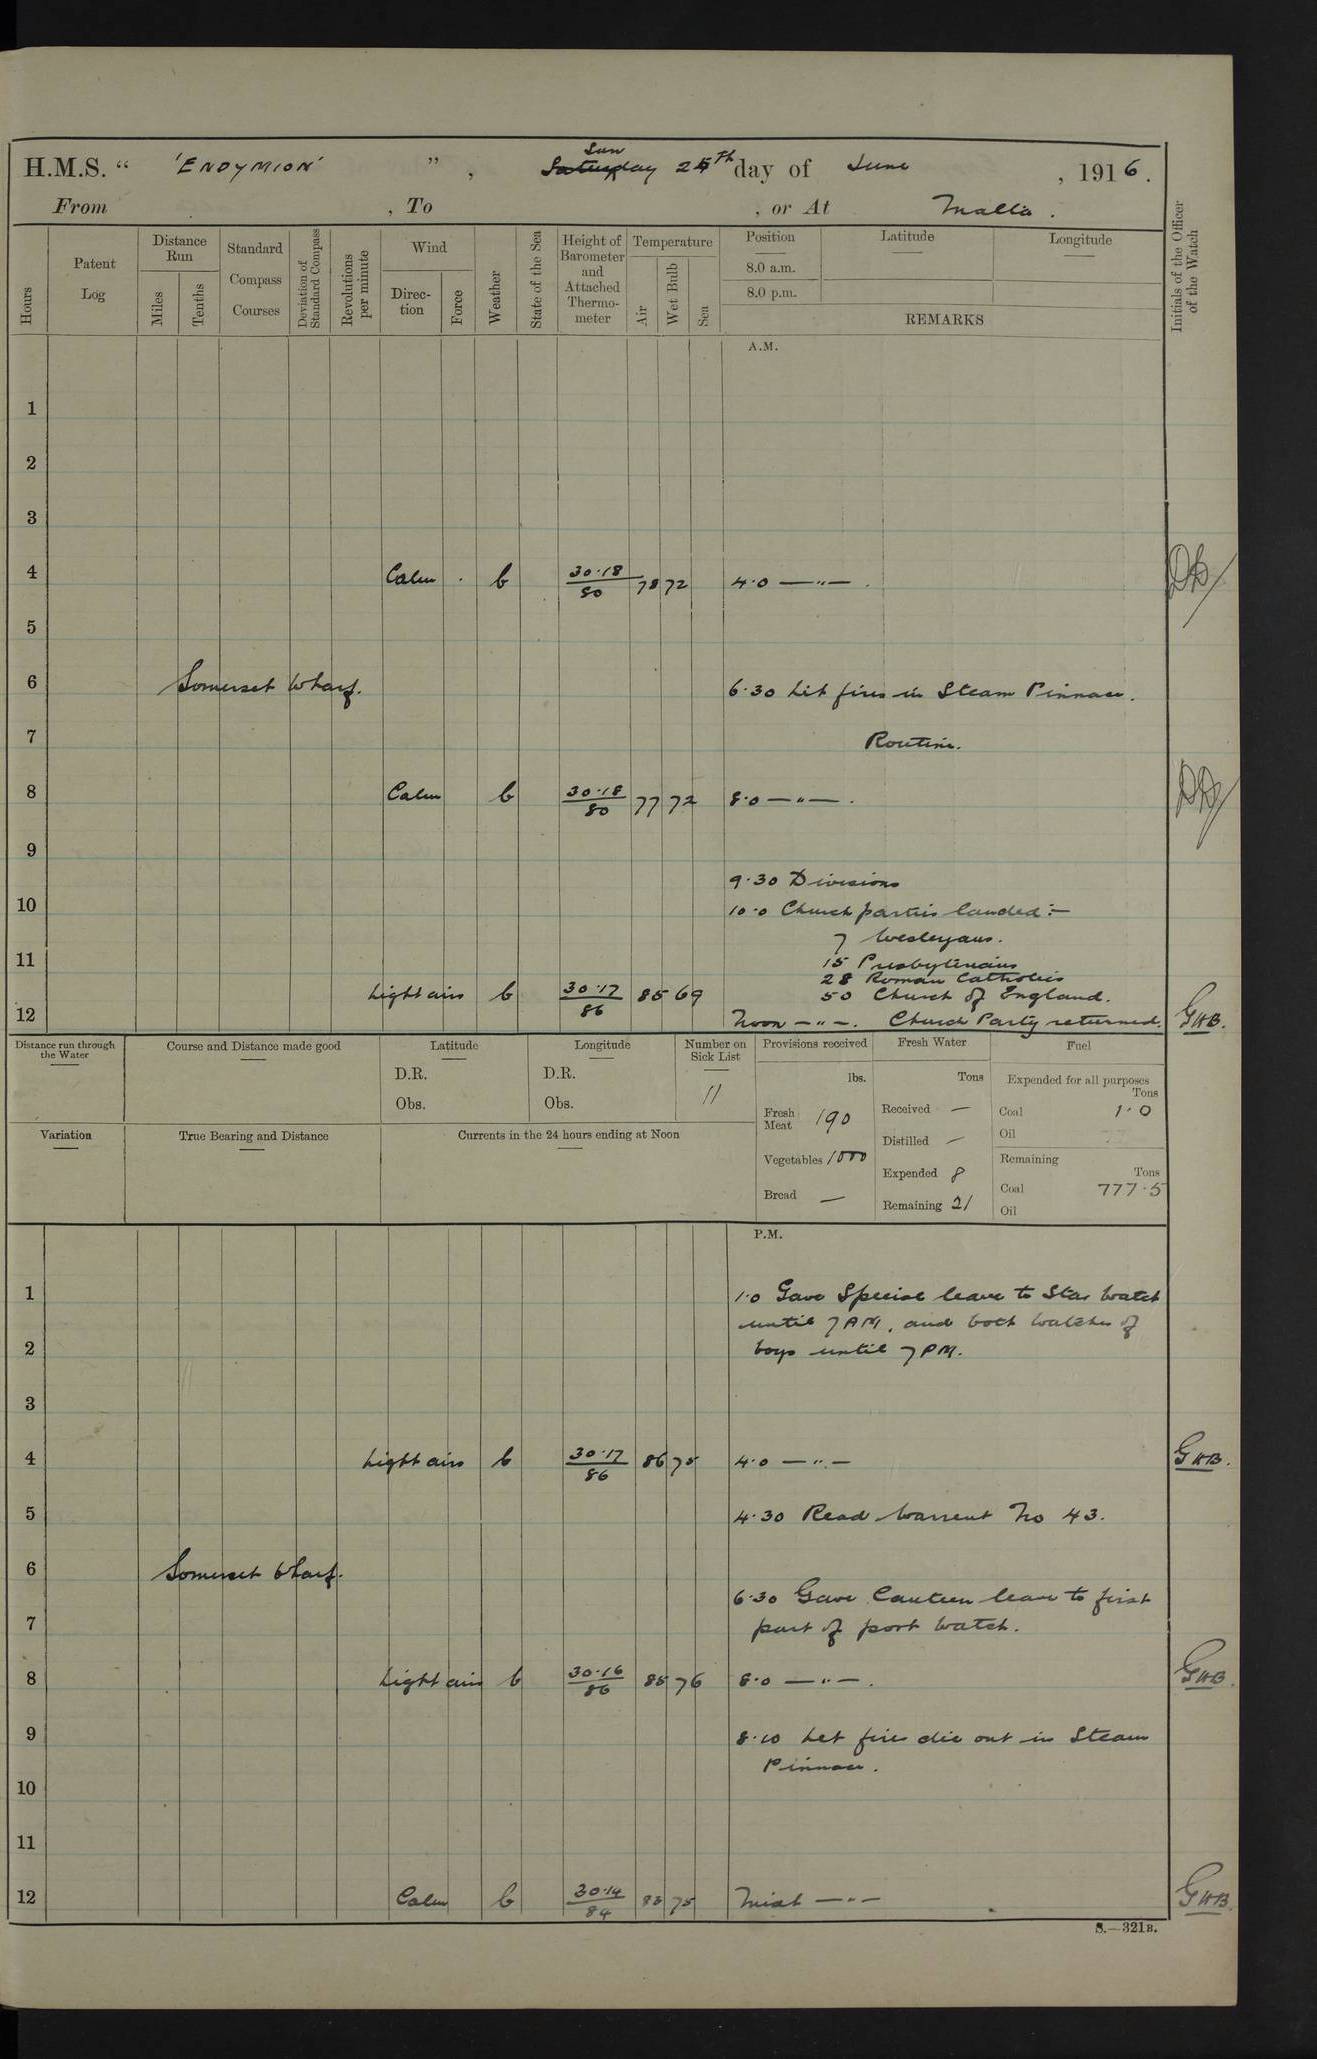 H.M.S. " 'ENDYMION' ", Satur Sunday 25th day of June, 1916.
From , To , or At Malta.
Hours
Patent Log
Distance Run
Miles
Tenths
Standard Compass Courses
Deviation of Standard Compass
Revolutions per minute
Wind
Direc-tion
Force
Weather
State of the Sea
Height of Barometer and Attached Thermo-meter
Temperature
Air
Wet Bulb
Sea
Position Latitude Longitude
8.0 a.m.
8.0 p.m.
REMARKS
Initials of the Officer of the Watch
A.M.
1
2
3
4 Calm . b 30.18/80 78 72 4.0 —"— .
5
6 Somerset Wharf. 6.30 Lit fires in Steam Pinnace.
7 Routine.
8 Calm b 30.18/80 77 72 8.0 —"— .
9
9.30 Divisions
10 10.0 Church parties landed:-
7 Wesleyans.
11 15 Presbyterians
28 Roman Catholics
Light airs b 30.17/86 85 69 50 Church of England.
12 Noon —"—. Church Party returned. GWB.
Distance run through the Water
Course and Distance made good
Latitude
D.R.
Obs.
Longitude
D.R.
Obs.
Number on Sick List
11
Provisions received
lbs.
Fresh Meat 190
Vegetables 1000
Bread —
Fresh Water
Tons
Received —
Distilled —
Expended 8
Remaining 21
Fuel
Expended for all purposes
Tons
Coal 1.0
Oil
Remaining
Tons
Coal 777.5
Oil
Variation
True Bearing and Distance
Currents in the 24 hours ending at Noon
P.M.
1 1.0 Gave Special leave to Star Watch
until 7AM, and both watches of
2 boys until 7PM.
3
4 Light airs b 30.17/86 86 75 4.0 —"— GWB.
5 4.30 Read Warrent No 43.
6 Somerset Wharf.
6.30 Gave Canteen leave to first
7 part of port watch.
8 Light airs b 30.16/86 85 76 8.0 —"—. GWB.
9 8.10 Let fires die out in Steam
Pinnace.
10
11
12 Calm b 30.14/84 83 75 Midt —"— GWB.
S.—321B.